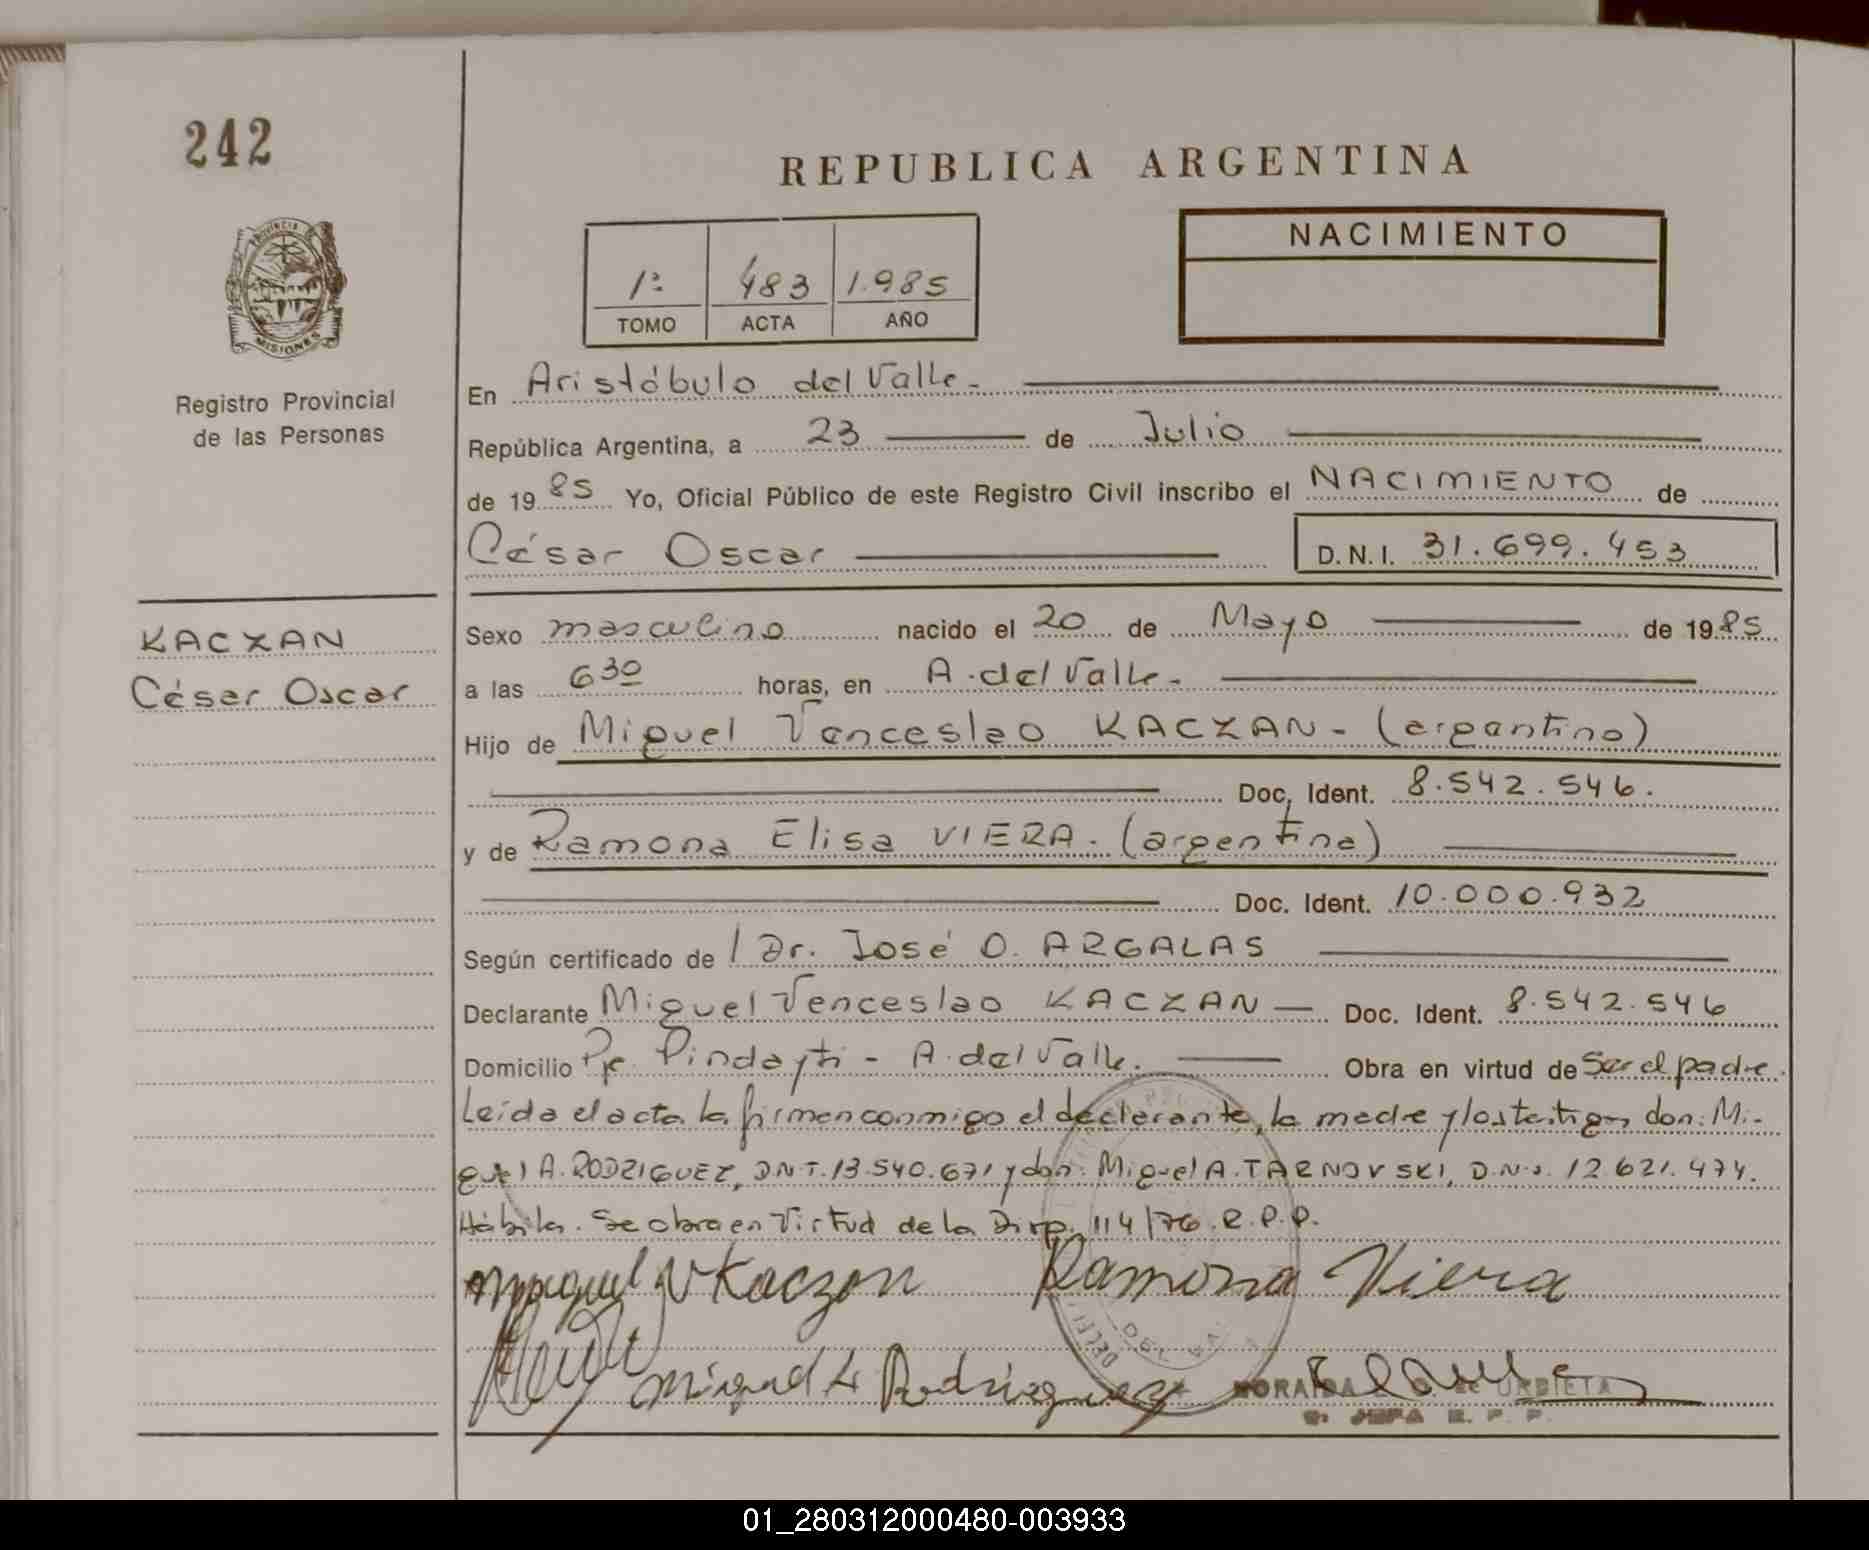 242
REPUBLICA ARGENTINA
NACIMIENTO
1º 483 1.985
TOMO ACTA AÑO
PROVINCIA DE
MISIONES
Registro Provincial
de las Personas
En Aristóbulo del Valle.
República Argentina, a 23 de Julio
de 1985 Yo, Oficial Público de este Registro Civil inscribo el NACIMIENTO de
César Oscar D.N.I. 31.699.453
KACZAN
César Oscar
Sexo masculino nacido el 20 de Mayo de 1985
a las 6 30 horas, en A. del Valle.
Hijo de Miguel Venceslao KACZAN - (argentino)
Doc. Ident. 8.542.546.
y de Ramona Elisa VIERA. (argentina)
Doc. Ident. 10.000.932
Según certificado de Dr. José O. ARGALAS
Declarante Miguel Venceslao KACZAN Doc. Ident. 8.542.546
Domicilio Pje. Pindayti - A. del Valle. Obra en virtud de Ser el padre.
Leída el acta la firman conmigo el declarante, la madre y los testigos don: Mi-
guel A. RODRIGUEZ, D.N.I. 13.540.671 y don: Miguel A. TARNOVSKI, D.N.I. 12.621.474.
Hábiles. Se obra en Virtud de la Disp. 114/76. R.P.P.
Miguel V Kaczan Ramona Viera
Miguel A Rodriguez
NORAIDA de URBIETA
JEFA R. P. P.
01_280312000480-003933